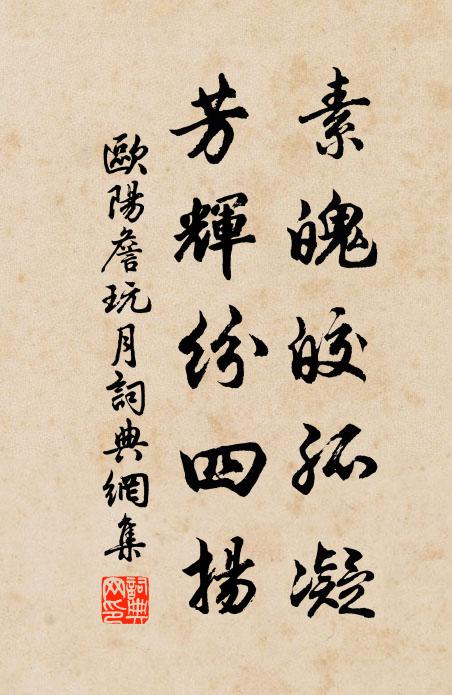 素魄皎孤凝
芳輝紛四揚
歐陽詹玩月詞典網集